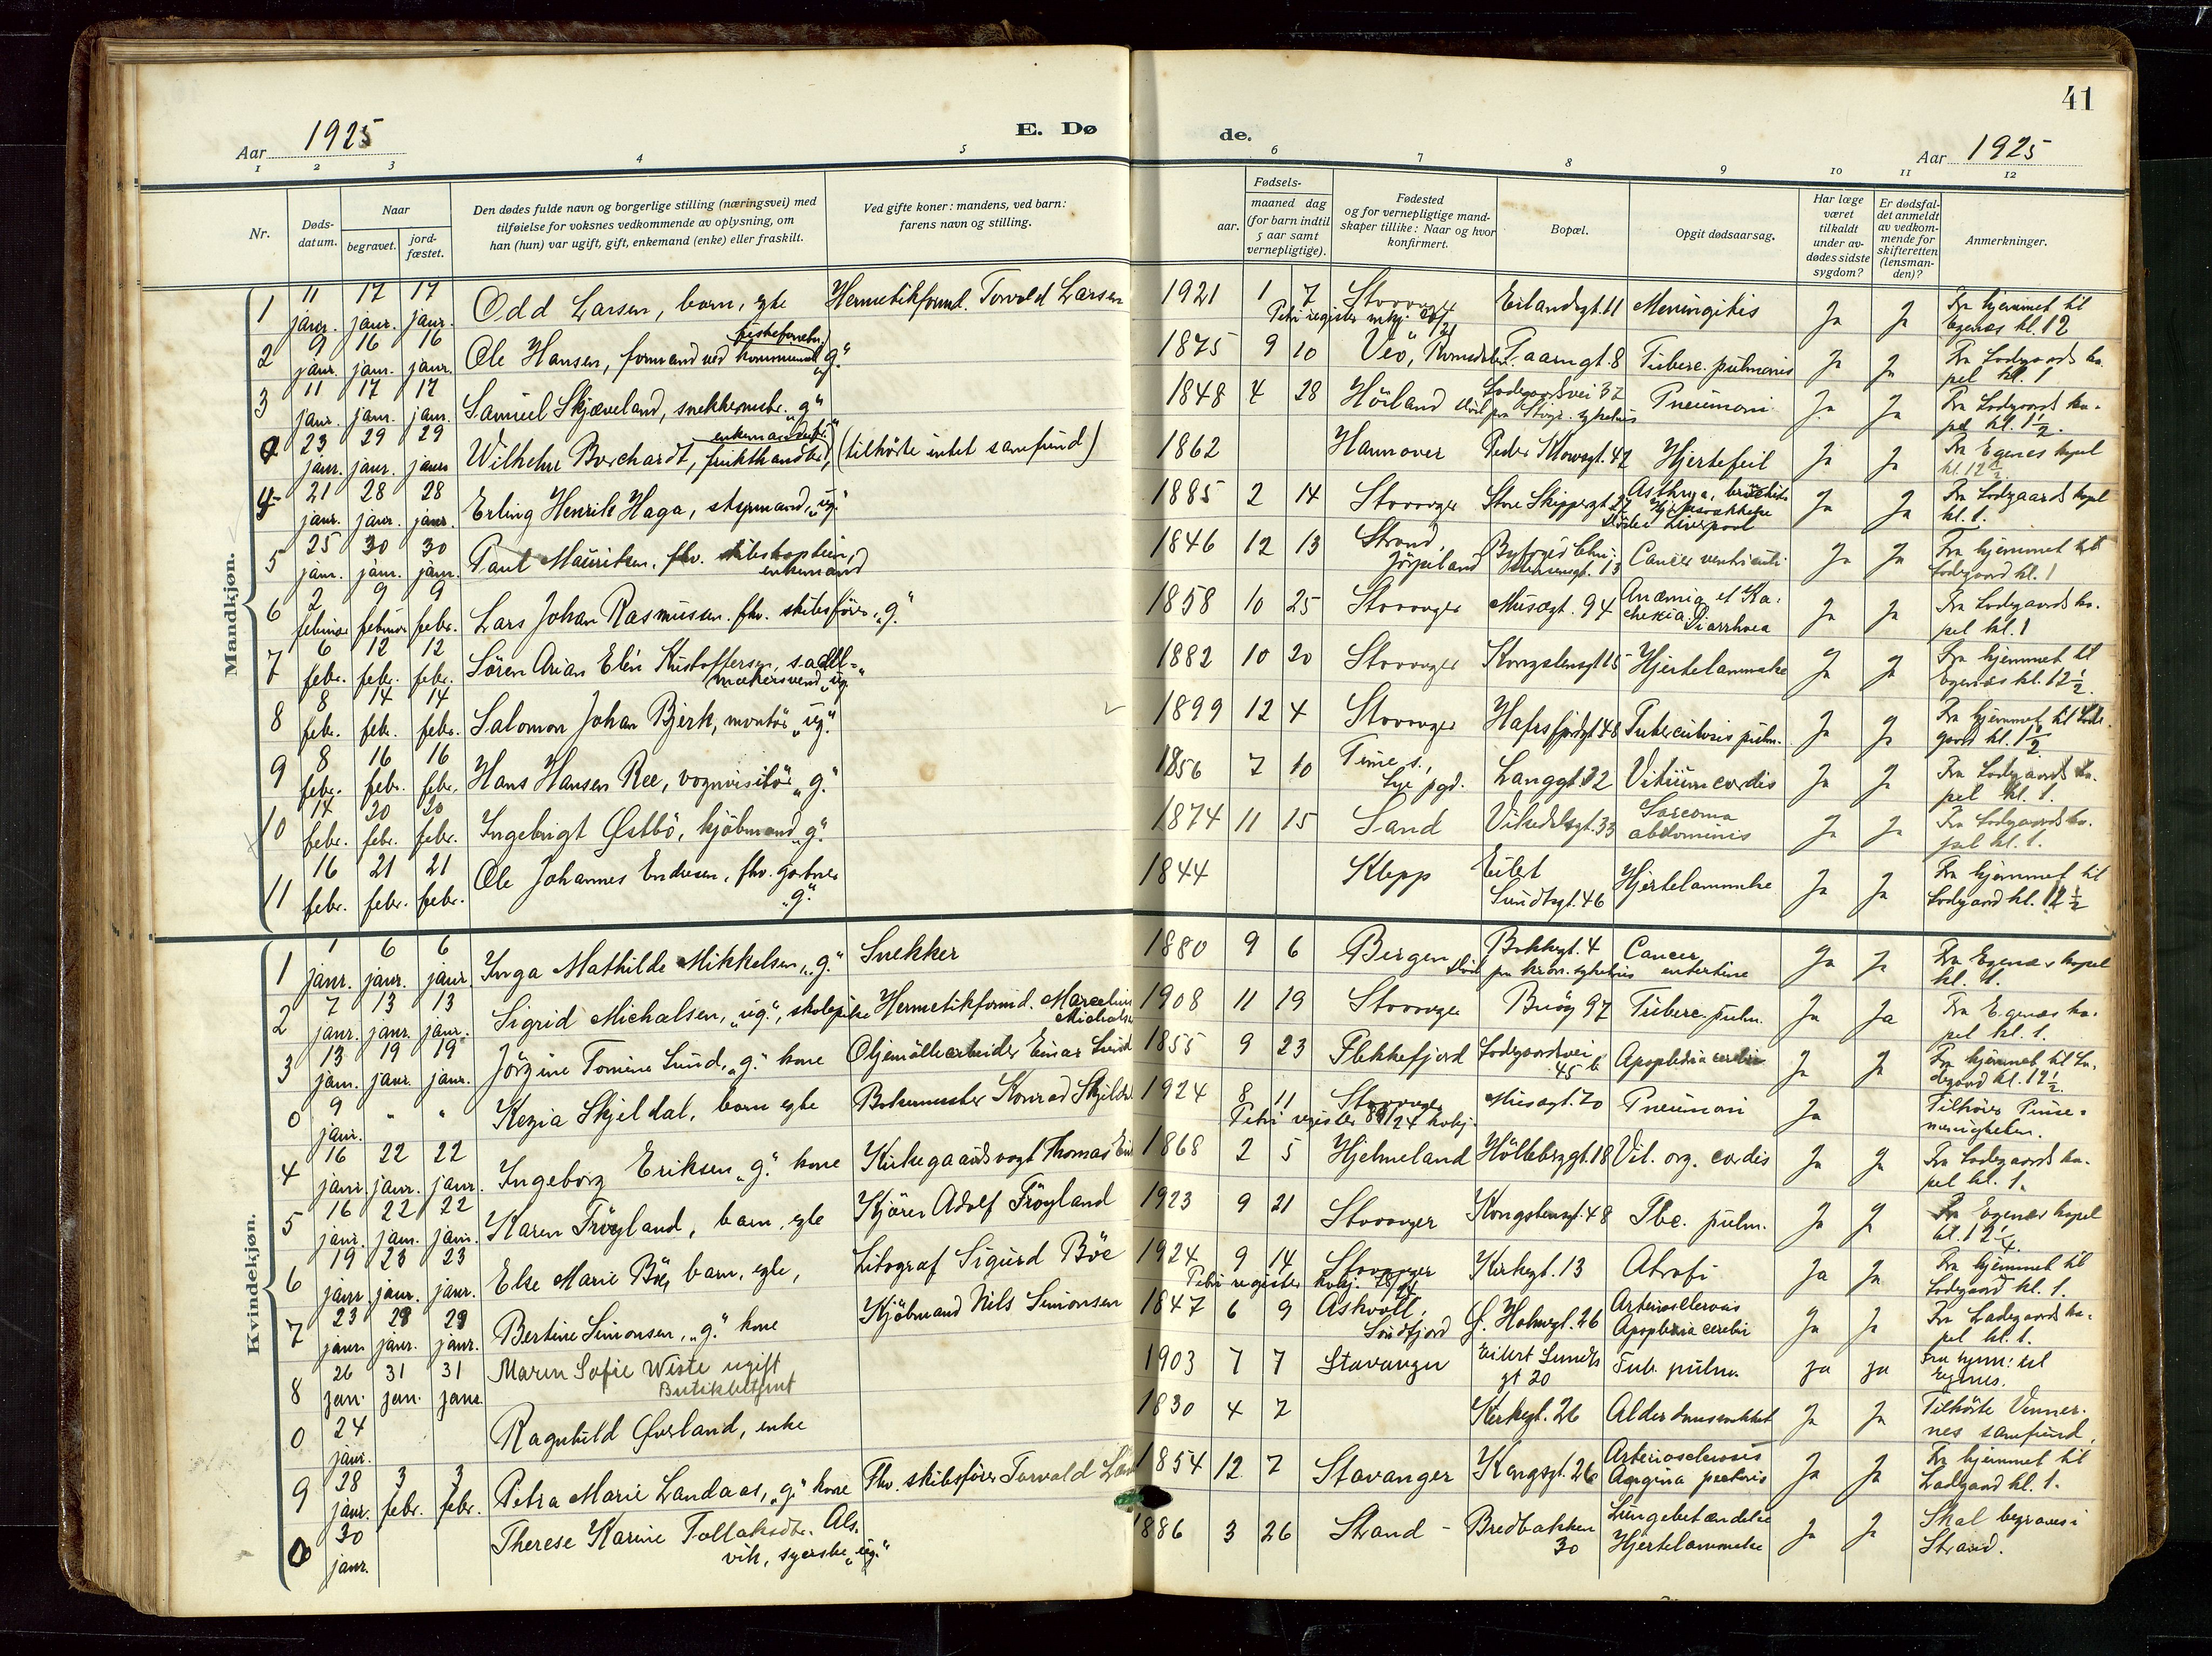 41
Aar 1925
E. Døde.
Aar 1925
1 2 3 4 5 6 7 8 9 10 11 12
Nr.
Dødsdatum.
Naar
begravet.
jordfæstet.
Den dødes fulde navn og borgerlige stilling (næringsvei) med
tilføielse for voksnes vedkommende av oplysning, om
han (hun) var ugift, gift, enkemand (enke) eller fraskilt.
Ved gifte koner: mandens, ved barn:
farens navn og stilling.
Fødsels-
aar.
maaned dag
(for barn indtil
5 aar samt
vernepligtige).
Fødested
og for vernepligtige mand-
skaper tillike: Naar og hvor
konfirmert.
Bopæl.
Opgit dødsaarsag.
Har læge
været
tilkaldt
under av-
dødes sidste
sygdom?
Er dødsfal-
det anmeldt
av vedkom-
mende for
skifteretten
(lensman-
den)?
Anmerkninger.
Mandkjøn.
1 11 janr. 17 janr. 17 janr. Odd Larsen, barn, egte Hermetikformd. Torvald Larsen 1921 1 7 Stavanger Eilandsgt. 11 Meningitis Ja Ja Fra hjemmet til Egenæs kl. 12
Petri register
2 9 janr. 16 janr. 16 janr. Ole Hansen, formand ved "g." 1875 9 10 Veö, Tuberc. pulmonis Ja Ja Fra Ladegaards kapel kl. 1
3 11 janr. 17 janr. 17 janr. Samuel Skjæveland, snekkermstr. "g" 1848 4 28 Höiland Ladegaardsvei 37 Pneumoni Ja Ja Fra Ladegaards kapel kl. 1½.
0 23 janr. 29 janr. 29 janr. Wilhelm Borchardt, frukthandler, (tilhörte intet samfund) 1862 Hannover Peder Klowsgt. 47 Hjertefeil Ja Ja Fra Egenes kapel kl. 12½
4 21 janr. 28 janr. 28 janr. Erling Henrik Haga, styrmand, "ug." 1885 2 14 Stavanger Store Skippergt. 27 Asthma, Död i Liverpool Ja Ja Fra Ladegaards kapel kl. 1.
5 25 janr. 30 janr. 30 janr. Paul Mauritsen, fhv. skibskaptein, enkemand 1846 12 13 Strand, Jörpeland Cancer ventriculi Ja Ja Fra hjemmet til Ladegaard kl. 1
6 2 februar 9 februar 9 febr. Lars Johan Rasmussen. fhv. skibsförer "g." 1858 10 25 Stavanger Musegt. 94 Anæmia et Kachexia. Diarrhoea Ja Ja Fra Ladegaards kapel kl. 1
7 6 febr. 12 febr. 12 febr. Sören Arian Elen Kristoffersen, sadelmakersvend "ug." 1882 10 20 Stavanger Kongstensgt 15 Hjertelammelse Ja Ja Fra hjemmet til Egenæs kl. 12½.
8 8 febr. 14 feb. 14 febr. Salomon Johan Bjerk, montör "ug." 1899 12 4 Stavanger Hafrsfjordgt 48 Tuberculosis pulm. Ja Ja Fra hjemmet til Ladegaard kl. 1½
9 8 febr. 16 febr. 16 febr. Hans Hansen Ree, vognvisitör "g." 1856 7 10 Time s., Lye pgd. Langgt. 32 Vitium cordis Ja Ja Fra Ladegaards kapel kl. 1.
10 14 febr. 20 febr. 20 febr. Ingebrigt Østbö, kjöbmand "g." 1874 11 15 Sand Vikedalsgt. 33 Sarcoma abdominis Ja Ja Fra Ladegaards kapel kl. 1.
11 16 febr. 21 febr. 21 febr. Ole Johannes Endresen, fhv. gartner "g." 1844 Klepp Eilert Sundtsgt. 46 Hjertelammelse Ja Ja Fra hjemmet til Ladegaard kl. 12½
Kvindekjøn.
1 1 janr. 6 janr. 6 janr. Inga Mathilde Mikkelsen, "g." Snekker 1880 9 6 Bergen Bakkegt. 4 Cancer Ja Ja Fra Egenæs kapel kl. 1.
2 7 janr. 13 janr. 13 janr. Sigrid Michalsen, "ug.", skolepike Hermetikformd. 1908 11 19 Stavanger Buöy 97 Tuberc. pulm. Ja Ja Fra Egenæs kapel kl. 1.
3 13 janr. 19 janr. 19 janr. Jörgine Tomine Lund, "g." kone Oljemöllearbeider Einar Lund 1855 9 23 Flekkefjord Ladegaardsvei 45 b Apoplexia cerebri Ja Ja Fra hjemmet til Ladegaard kl. 12½.
0 9 janr. " " Kezia Skjeldal, barn egte Bakermester Konrad Skjeldal 1924 8 11 Stavanger Musegt. 70 Pneumoni Ja Tilhörer Pinsemenigheten.
Petri register
4 16 janr. 22 janr. 22 janr. Ingeborg Eriksen "g." kone Kirkegaardsvogt Thomas 1868 2 5 Hjelmeland Höllebrygt. 18 Vit. org. cordis Ja Ja Fra Ladegaards kapel kl. 1.
5 16 janr. 22 janr. 22 janr. Karen Fröyland, barn, egte Kjörer Adolf Fröyland 1923 9 21 Stavanger Kongstensgt. 48 Tbc. pulm. Ja Ja Fra Egenæs kapel
6 19 janr. 23 janr. 23 janr. Else Marie Böe, barn, egte, Litograf Sigurd Böe 1924 9 14 Stavanger Kirkegt. 13 Atrofi Ja Ja Fra hjemmet til Ladegaard kl. 1.
Petri register
7 23 janr. 29 janr. 29 janr. Bertine Simonsen, "g." kone Kjöbmand Nils Simonsen 1847 6 9 Askvoll, Söndfjord Ø. Holmegt. 26 Arteriosclerosis Apoplexia cerebri Ja Ja Fra Ladegaards kapel kl. 1.
8 26 jan. 31 jan. 31 janr. Maren Sofie Wiste ugift Butikbetjent 1903 7 7 Stavanger Eilert Sundts gt 20 Tub. pulm. ja ja Fra hjem: til Egenes.
0 24 janr. Ragnhild Øverland, enke 1830 4 7 Kirkegt. 26 Alderdomssvakhet Ja Ja Tilhörte Vennernes samfund.
9 28 janr. 3 febr. 3 febr. Petra Marie Landaas, "g." kone Fhv. skibsförer Torvald 1854 12 7 Stavanger Kongsgt. 26 Arteriosclerosis Angina pectoris Ja Ja Fra hjemmet til Ladegaard kl. 1.
0 30 janr. Therese Karine Tollaksdtr. Alsvik, syerske "ug." 1886 3 26 Strand - Bredbakken 30 Lungebetændelse Hjertelammelse Ja Ja Skal begraves i Strand.